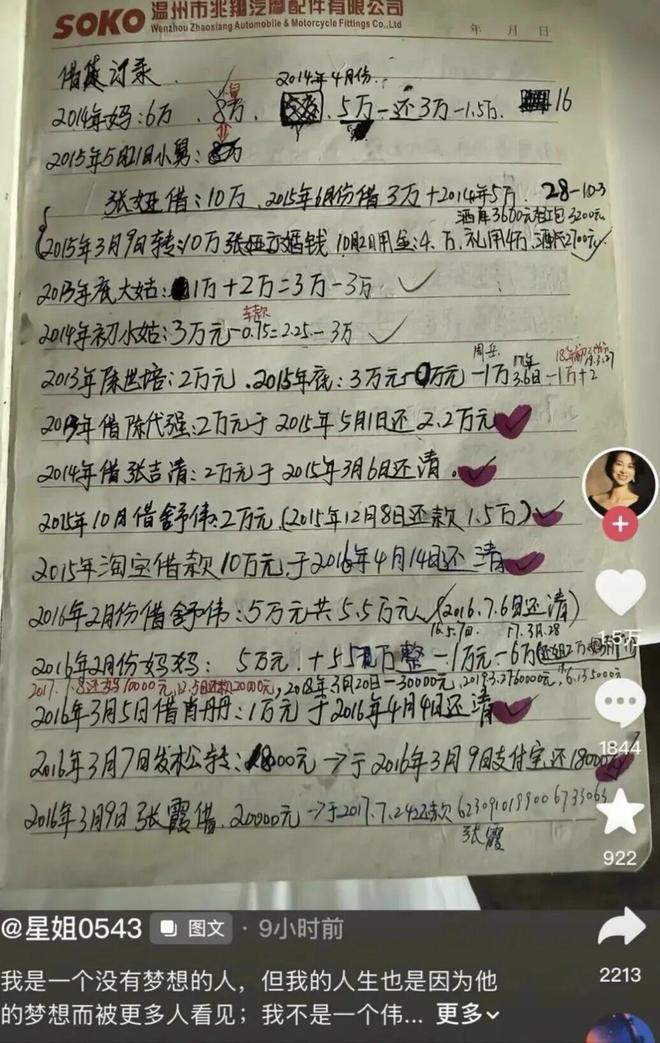 SOKO 温州市兆翔汽摩配件有限公司
Wenzhou Zhaoxiang Automobile & Motorcycle Fittings Co.,Ltd
年 月 日
借贷记录
2014年4月份
2014年妈:6万 8万 5万-还3万-1.5万 16
2015年5月21日小舅:
张娅借:10万 2015年6月份借3万+2014年5万 28-10.3
酒席3600元红包3200元
2015年3月9日转:10万张娅 婚钱 10月2日用金:4.万,礼用4万,酒水2700元
2013年底大姑:1万+2万=3万-3万
车款
2014年初小姑:3万元-0.75=2.25-3万
2013年陈世培:2万元.2015年底:3万元 万元-1万 3.6日-1万+2
2013年借陈代强:2万元于2015年5月1日还2.2万元
2014年借张吉清:2万元于2015年3月6日还清.
2015年10月借舒伟:2万元(2015年12月8日还款1.5万)
2015年淘宝借款10万元于2016年4月14日还清
2016年2月份借舒伟:5万元共5.5万元(2016.7.6日还清)
16.5.7日. 17.3月.28
2016年2月份妈妈: 5万元.+5.5 万整-1万元-6万
2017.7.8还妈10000元,12.5日还款20000元,2018年3月20日-30000元,
2016年3月5日借肖丹丹:1万元于2016年4月4日还清
2016年3月7日 转:18000元→于2016年3月9日支付宝还18000元
2016年3月9日张霞借.20000元→于2017.7.24还款
张霞
1844
922
2213
@星姐0543 图文 · 9小时前
我是一个没有梦想的人，但我的人生也是因为他
的梦想而被更多人看见；我不是一个伟... 更多